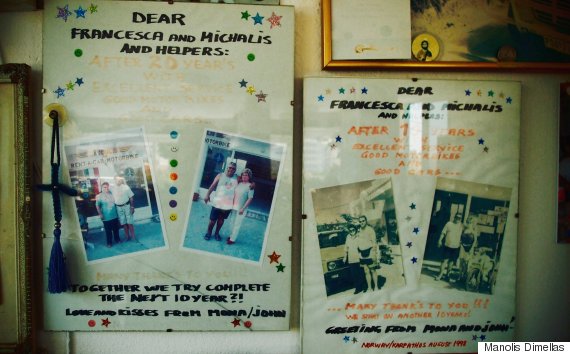 DEAR
FRANCESCA AND MICHALIS
AND HELPERS:
AFTER 20 YEAR'S
WITH
EXCELLENT SERVICE
GOOD
MOTORBIKE
RENT A CAR MOTORBIKE
MANY THANKS TO YOU!!
TOGETHER WE TRY COMPLETE
THE NEXT 10 YEAR?!
LOVE AND KISSES FROM MONA/JOHN
DEAR
FRANCESCA AND MICHALIS
AND HELPERS:
AFTER 15 YEARS
EXCELLENT SERVICE
GOOD MOTORBIKES
AND
GOOD CARS...
...MANY THANK'S TO YOU!!!
WE START ON ANOTHER 10 YEARS!
GREETING FROM MONA AND JOHN!
NORWAY/KARPATHOS AUGUST 1998
Manolis Dimellas